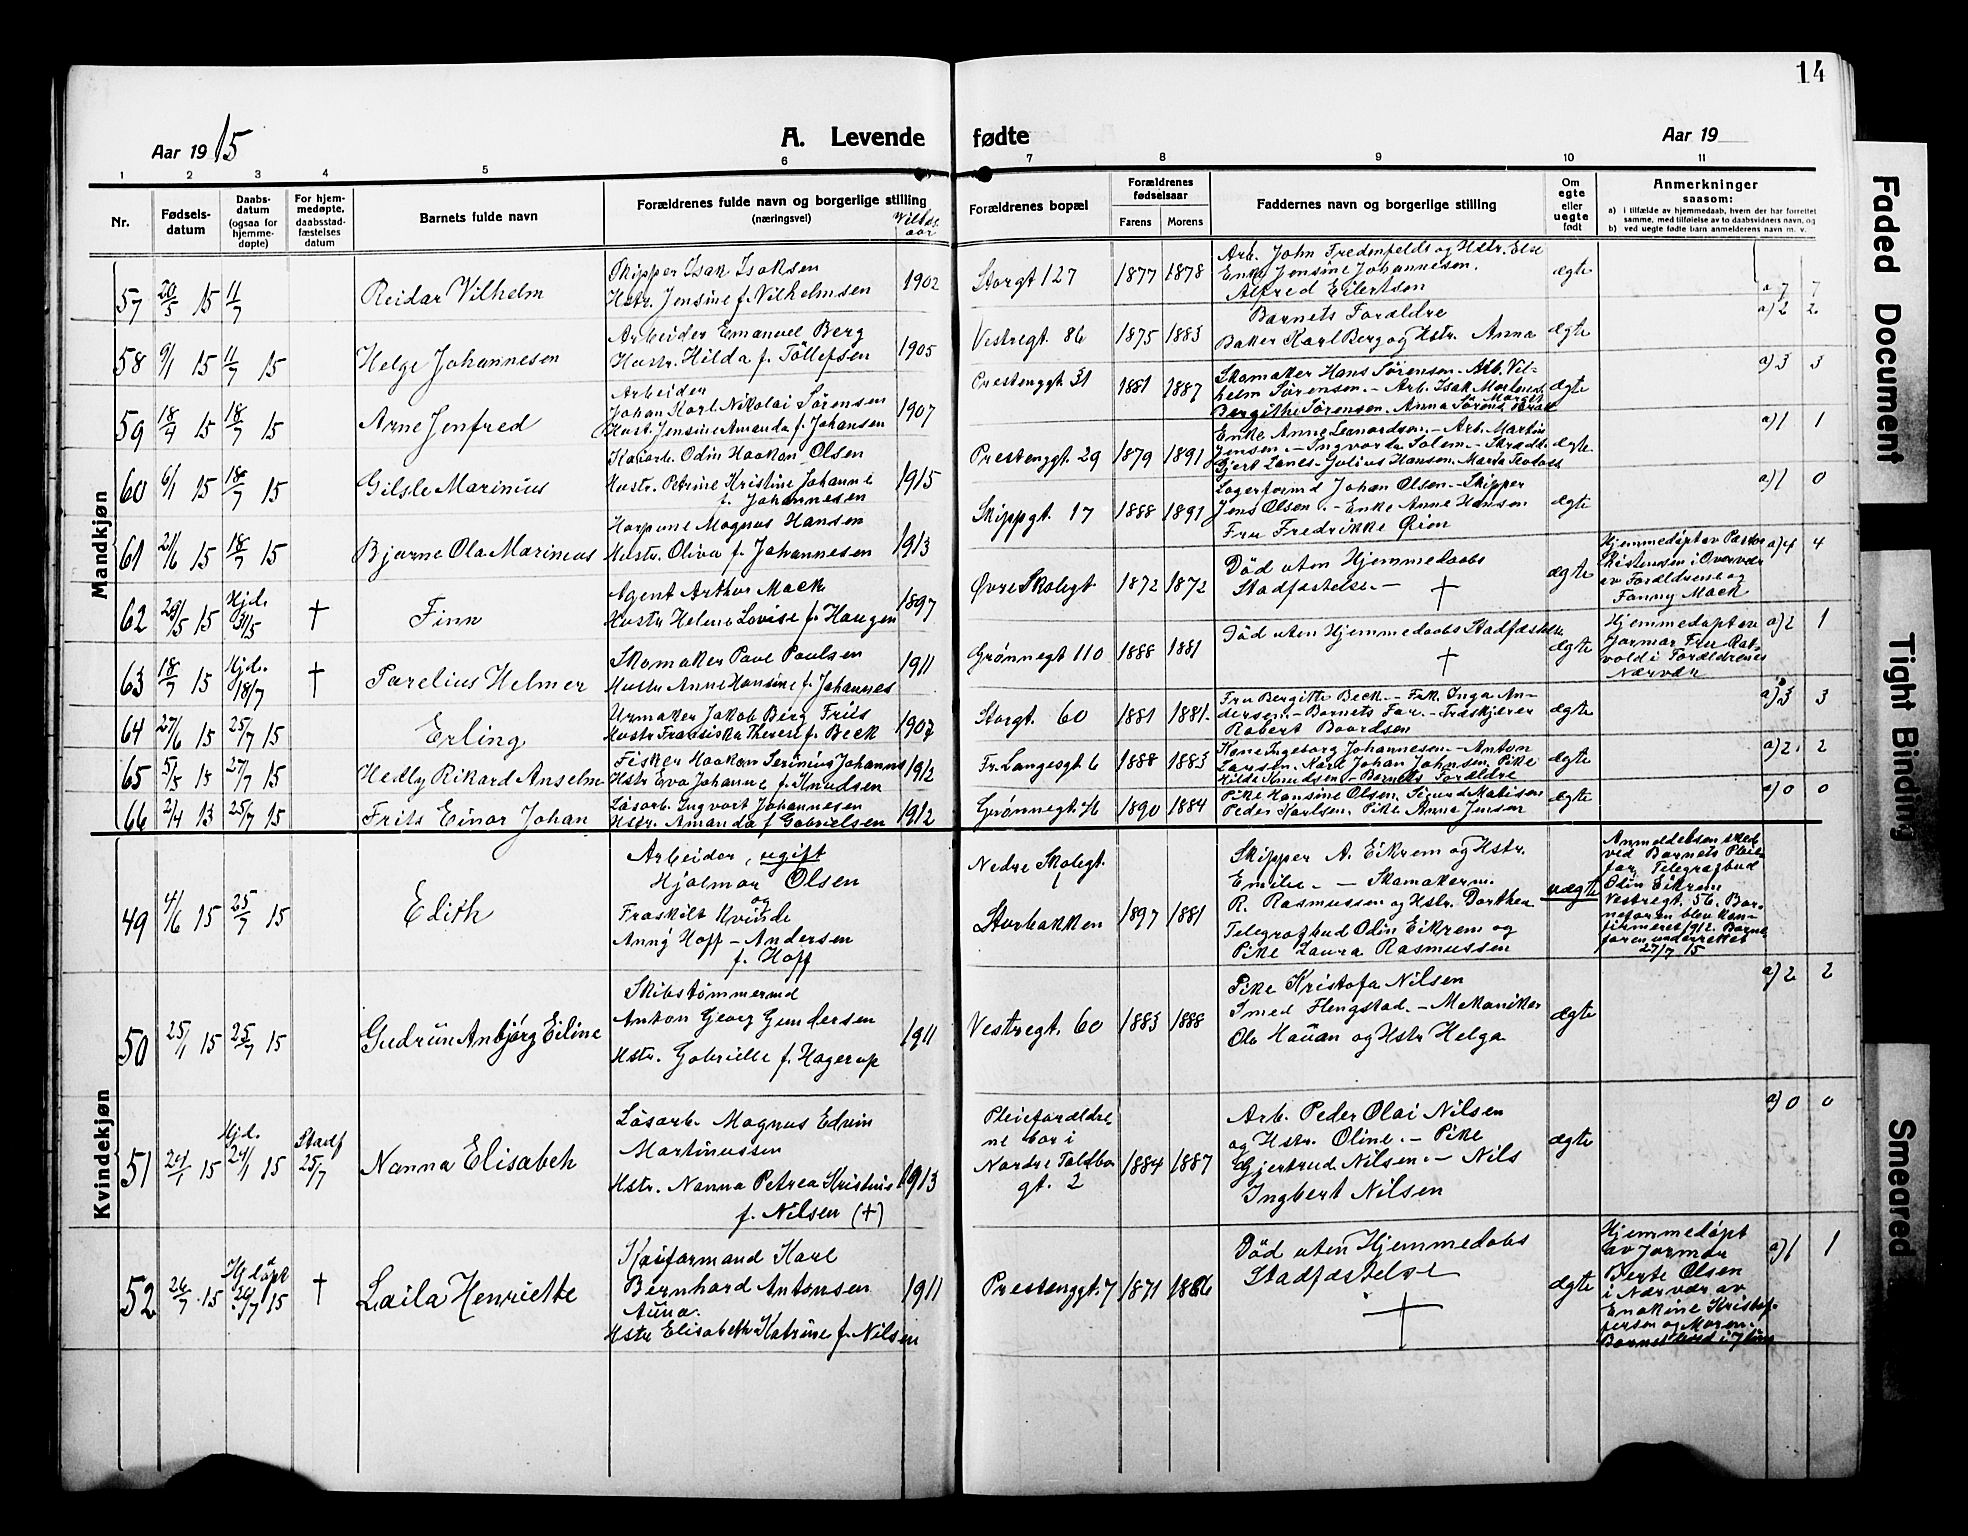 14
Aar 1915
A. Levende
fødte
Aar 19
1 2 3 4 5 6 7 8 9 10 11
Nr.
Fødsels-
datum
Daabs-
datum
(ogsaa for
hjemme-
døpte)
For hjem-
medøpte,
daabsstad-
fæstelses
datum
Barnets fulde navn
Forældrenes fulde navn og borgerlige stilling
(næringsvei)
Vielses-
aar
Forældrenes bopæl
Forældrenes
fødselsaar
Farens Morens
Faddernes navn og borgerlige stilling
Om
egte
eller
uegte
født
Anmerkninger
saasom:
a) i tilfælde av hjemmedaab, hvem der har forrettet
samme, med tilføielse av to daabsvidners navn, og
b) ved uegte fødte barn anmelderens navn m. v.
Mandkjøn
57 20/5 15 11/7
Reidar Vilhelm
Skipper Isak Isaksen
Hstr. Jensine f. Vilhelmsen
1902
Storgt 127 1877 1878
Arb. John Fredenfeldt og Hstr. Else
Enke Jensine Johannesen.
Alfred Eilertsen
ægte
58 9/1 15 11/7 15
Helge Johannesen
Arbeider Emanuel Berg
Hustr. Hilda f. Tollefsen
1905
Vestregt. 86 1875 1883
Barnets Forældre
Baker Karl Berg og Hstr. Anna
ægte
a) 2 2
59 18/4 15 18/7 15
Arne Jenfred
Arbeider
Johan Karl Nikolai Sørensen
Hust. Jensine Amanda f. Johansen
1907
Prestenggt. 31 1881 1887
Skomaker Hans Sørensen - Arb. Vil-
helm Sørensen. - Arb. Isak Mortens
ægte
a) 3 3
60 6/1 15 18/7 15
Gisle Marinius
Kaiarb. Odin Haakon Olsen
Hustr. Petrine Kristine Johanne
f. Johannesen
1915
Prestenggt. 29 1879 1891
Enke Anne Leonardsen. - Arb. Martin
Jensen. - Ingvarda Solem. -
ægte
a) 1 1
61 21/6 15 18/7 15
Bjarne Ola Marinius
Harpune Magnus Hansen
Hustr. Oliva f. Johannesen
1913
Skippgt. 17 1888 1891
Lagerformd Johan Olsen. - Skipper
Jens Olsen. - Enke Anne Hansen
Fru Fredrikke Ørien
ægte
a) 1 0
62 29/5 15 Hjd. 31/5 †
Finn
Agent Arthur Mack
Hustr Helene Lovise f. Haugen
1897
Øvre Skolegt. 1872 1872
Død uten Hjemmedaabs
Stadfæstelse - †
ægte
Hjemmedøpt av Pastor
Kristensen i Overvær
av Forældrene og
Fanny Mack
a) 4 4
63 18/7 15 Hjd. 18/7 †
Parelius Helmer
Skomaker Paul Paulsen
Hustr Anne Hansine f. Johannes
1911
Grønnegt 110 1888 1881
Død uten Hjemmedaabs Stadfæstelse
†
ægte
Hjemmedøpt av
Jormor Fru Rat-
vold i Forældrenes
Nærvær
a) 2 1
64 27/6 15 25/7 15
Erling
Urmaker Jakob Berg Friis
Hustr Fransiska Therese f. Beck
1907
Storgt. 60 1881 1881.
Fru Bergitte Beck - Frk. Inga An-
dersen. - Barnets Far. - Træskjærer
Robert Baardsen
ægte
a) 3 3
65 5/5 15 27/7 15
Hedly Rikard Anselm
Fisker Haakon Serinius Johanns
Hstr Eva Johanne f. Knudsen
1912
Fr. Langesgt. 6 1888 1883
Kone Ingeborg Johannesen - Anton
Larsen. Karl Johan Johnsen. Pike
Hilda Knudsen - Barnets Forældre
ægte
a) 2 2
66 2/4 13 25/7 15
Frits Einar Johan
Løsarb. Ingvart Johannesen
Hstr. Amanda f. Gabrielsen
1912
Grønnegt. 1890 1884
Pike Hansine Olsen. Sigurd Mathisen
Peder Karlsen. Pike Anna Jensen
ægte
a) 0 0
Kvindekjøn
49 4/6 15 25/7 15
Edith
Arbeider, ugift
Hjalmar Olsen
og
Fraskilt Kvinde
Anny Hoff - Andersen
f. Hoff
Nedre Skolegt.
Storbakken
1897 1881
Skipper A. Eikrem og Hstr.
Emilie. - Skomakerm.
R. Rasmussen og Hstr. Dorthea
Telegrafbud Odin Eikrem og
Pike Laura Rasmussen
uægte
Anmeldelsen skedd
ved Barnets Pleie-
far, Telegrafbud
Odin Eikrem
Vestregt. 56. Bar-
nefaren blev kon-
firmeret 1912. Barne
faren underrettet
27/7 15
50 25/1 15 25/7 15
Gudrun Anbjørg Eiline
Skibstømmermd
Anton Georg Gundersen
Hstr. Gabrielle f. Hagerup
1911
Vestregt. 60 1883 1888
Pike Kristofa Nilsen
Smed Flengstad. - Mekaniker
Ole Hauan og Hstr Helga
ægte
a) 2 2
51 24/1 15 Hjd. 24/1 15 Stadf 25/7
Nanna Elisabeth
Løsarb. Magnus Edvin
Martinussen
Hstr. Nanna Petrea Kristine
f. Nilsen (+)
1913
Pleieforældre-
ne bor i
Nordre Toldbo
gt. 2
1884 1887
Arb. Peder Olai Nilsen
og Hstr. Oline. - Pike
Gjertrud Nilsen. - Nils
Ingbert Nilsen
ægte
a) 0 0
52 26/7 15 Hjdøpt 26/7 15 †
Laila Henriette
Kaiformand Karl
Bernhard Antonsen
Auna.
Hstr Elisabeth Katrine f. Nilsen
1911
Prestenggt. 7 1871 1886
Død uten Hjemmedabs
Stadfæstelse
†
ægte
Hjemmedøpt
av Jormor
Berte Olsen
i Nærvær av
Enokine Kristof-
fersen og Moren.
a) 1 1
Faded Document
Tight Binding
Smeared